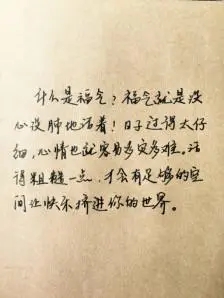 什么是福气？福气就是没
心没肺地活着！日子过得太仔
细，心情也就容易多灾多难。活
得粗糙一点，才会有足够的空
间让快乐挤进你的世界。